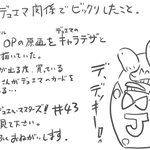 デュエマ関係でビックリしたこと。
デュエマの
OPの原画をキャラデザと
描いていた。
が出る度、買っている
さんがデュエマのカードを
る…
デュエル・マスターズ! #43
見て下さい。
おねがいします。
デ、デッキー!!